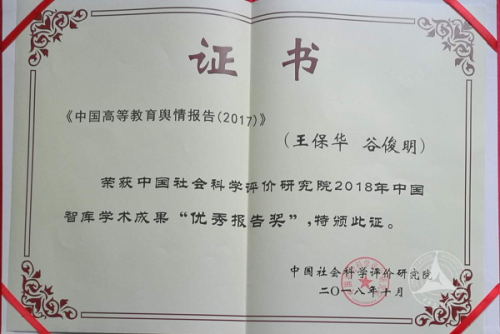 证 书
《中国高等教育舆情报告(2017)》
(王保华 谷俊明)
荣获中国社会科学评价研究院2018年中国
智库学术成果“优秀报告奖”,特颁此证。
中国社会科学评价研究院
二〇一八年十月